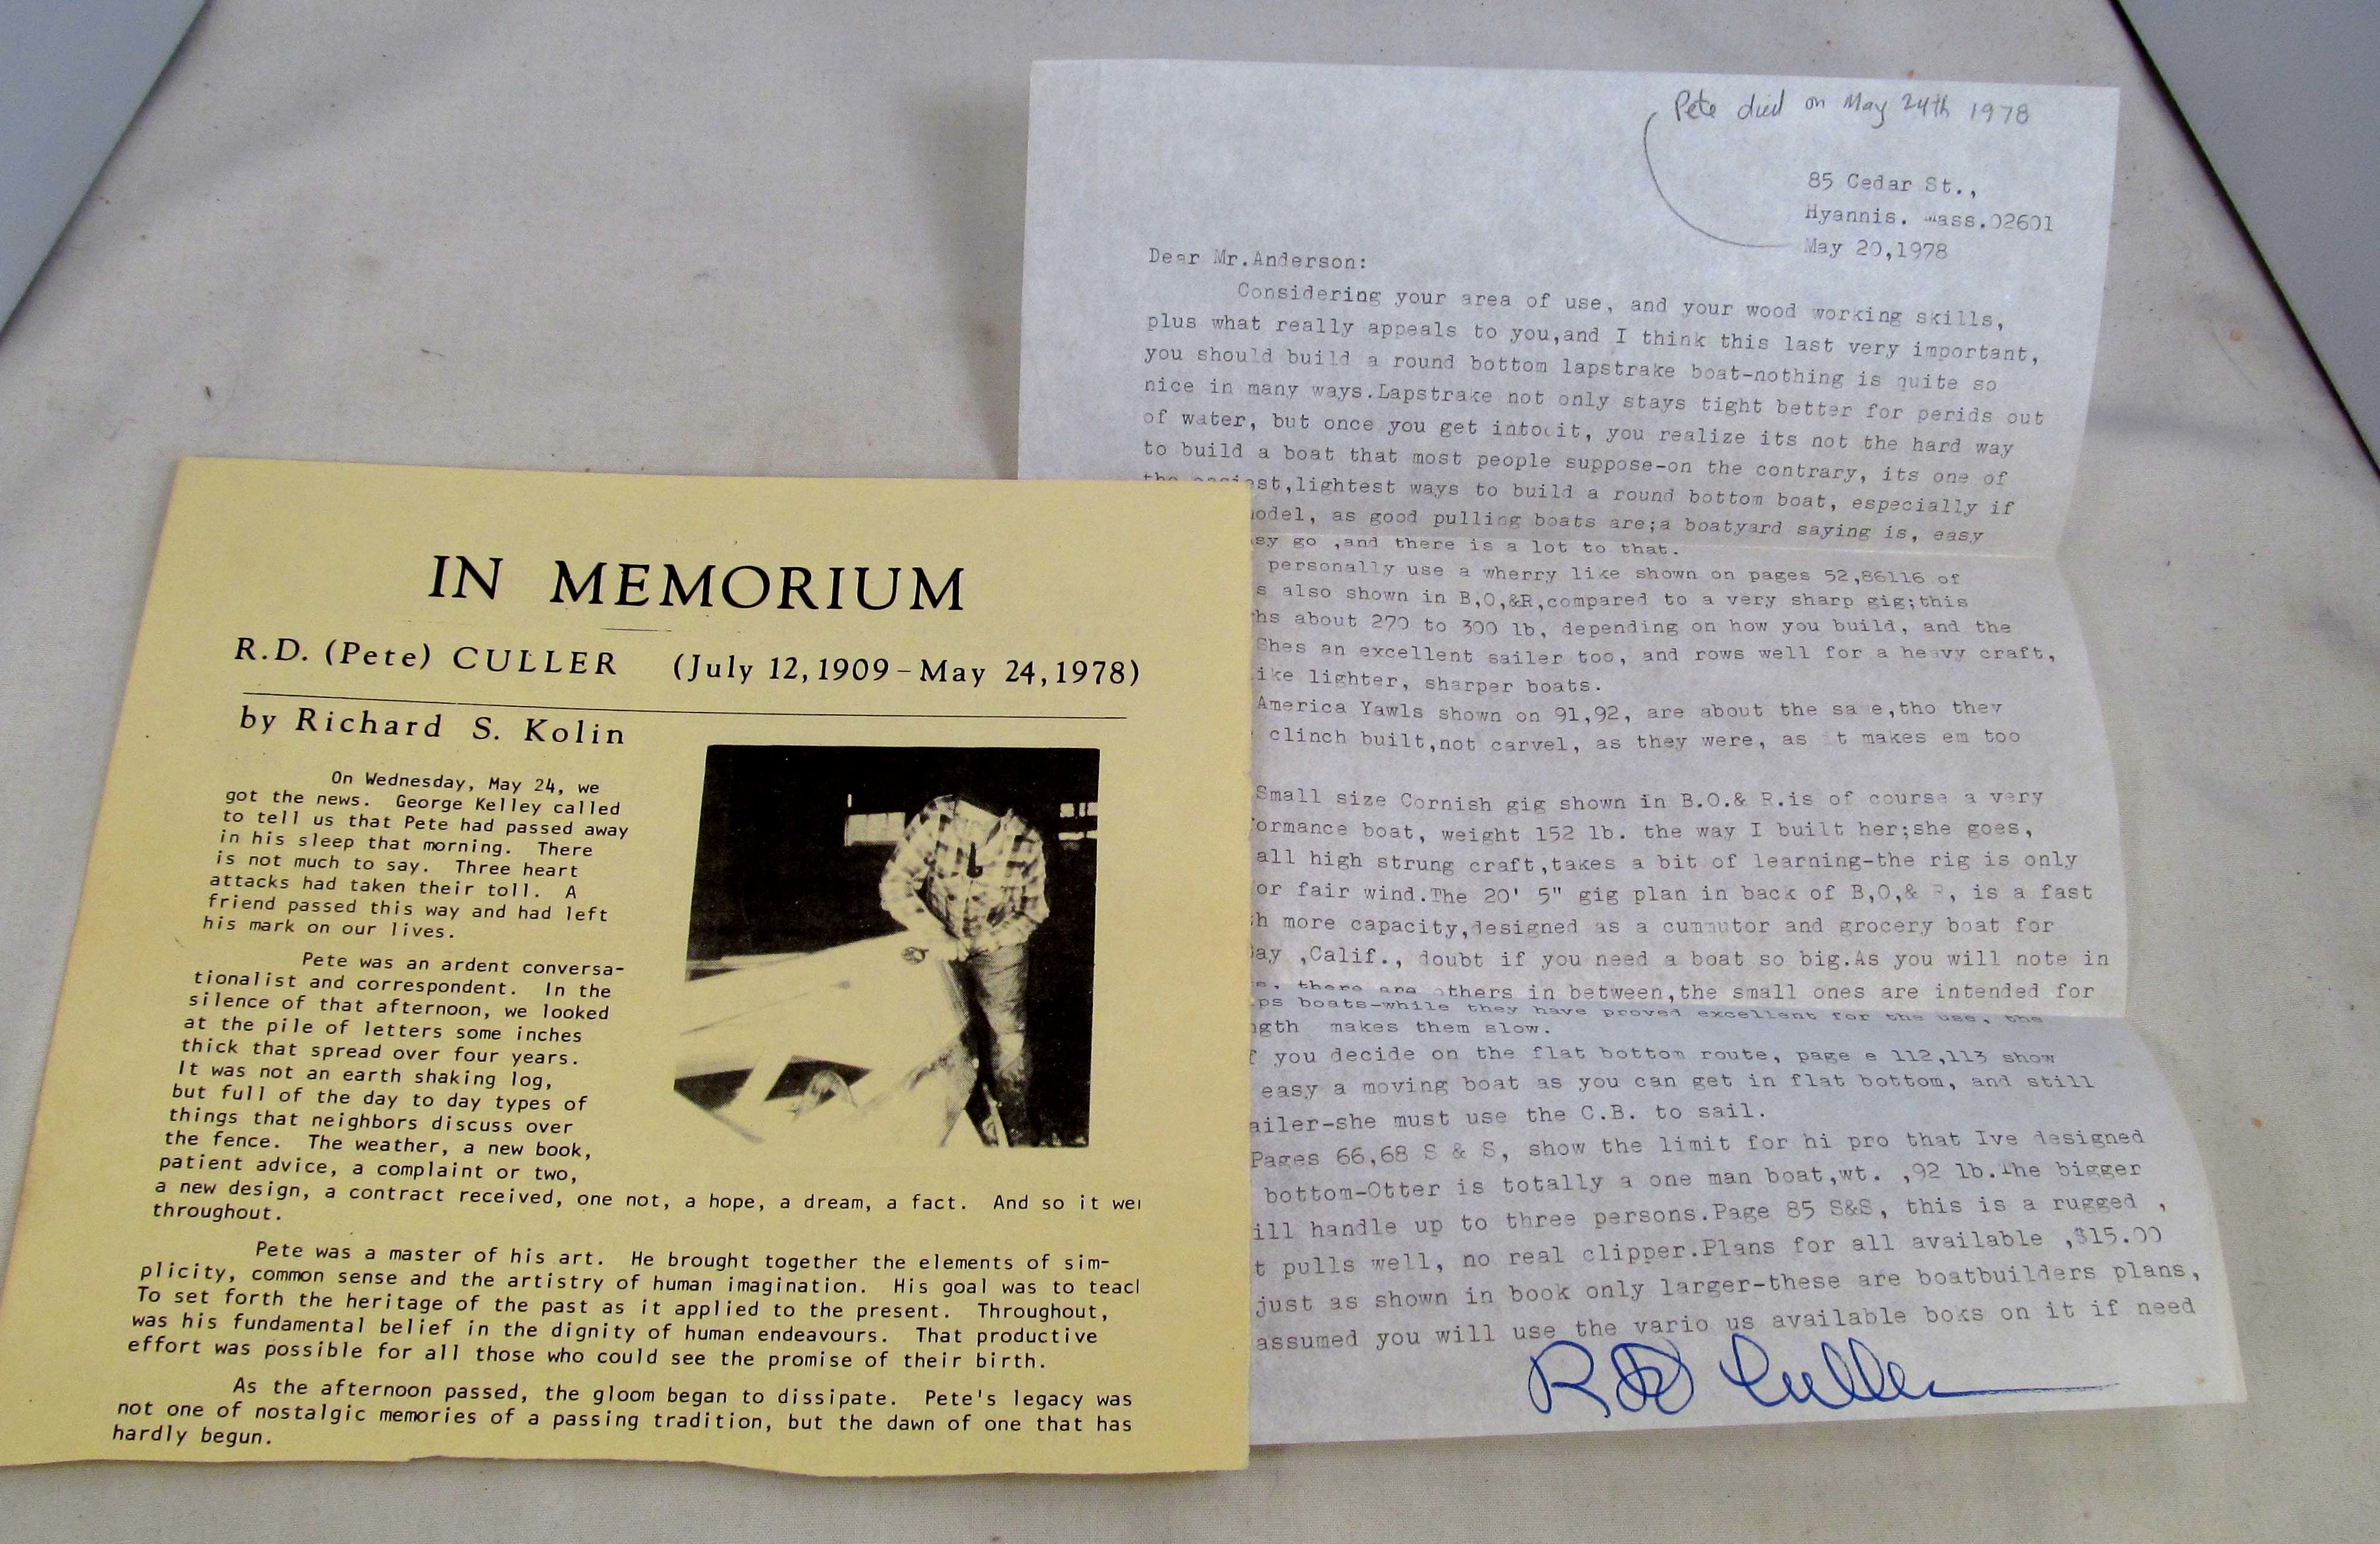 IN MEMORIUM
R.D. (Pete) CULLER (July 12, 1909 – May 24, 1978)
by Richard S. Kolin
On Wednesday, May 24, we
got the news. George Kelley called
to tell us that Pete had passed away
in his sleep that morning. There
is not much to say. Three heart
attacks had taken their toll. A
friend passed this way and had left
his mark on our lives.
Pete was an ardent conversa-
tionalist and correspondent. In the
silence of that afternoon, we looked
at the pile of letters some inches
thick that spread over four years.
It was not an earth shaking log,
but full of the day to day types of
things that neighbors discuss over
the fence. The weather, a new book,
patient advice, a complaint or two,
a new design, a contract received, one not, a hope, a dream, a fact. And so it
throughout.
Pete was a master of his art. He brought together the elements of sim-
plicity, common sense and the artistry of human imagination. His goal was to
To set forth the heritage of the past as it applied to the present. Throughout,
was his fundamental belief in the dignity of human endeavours. That productive
effort was possible for all those who could see the promise of their birth.
As the afternoon passed, the gloom began to dissipate. Pete's legacy was
not one of nostalgic memories of a passing tradition, but the dawn of one that has
hardly begun.
Pete died on May 24th 1978
85 Cedar St.,
Hyannis. Mass.02601
May 20,1978
Dear Mr.Anderson:
Considering your area of use, and your wood working skills,
plus what really appeals to you,and I think this last very important,
you should build a round bottom lapstrake boat-nothing is quite so
nice in many ways.Lapstrake not only stays tight better for perids out
of water, but once you get into it, you realize its not the hard way
to build a boat that most people suppose-on the contrary, its one of
the easiest,lightest ways to build a round bottom boat, especially if
model, as good pulling boats are;a boatyard saying is, easy
go ,and there is a lot to that.
personally use a wherry like shown on pages 52,86116 of
also shown in B,O,&R,compared to a very sharp gig;this
about 270 to 300 lb, depending on how you build, and the
Shes an excellent sailer too, and rows well for a heavy craft,
like lighter, sharper boats.
America Yawls shown on 91,92, are about the sa e,tho they
clinch built,not carvel, as they were, as t makes em too
Small size Cornish gig shown in B.O.& R.is of course a very
boat, weight 152 lb. the way I built her;she goes,
all high strung craft,takes a bit of learning-the rig is only
or fair wind.The 20' 5" gig plan in back of B,O,& R, is a fast
more capacity,designed as a cummutor and grocery boat for
Bay ,Calif., doubt if you need a boat so big.As you will note in
there are others in between,the small ones are intended for
boats-while they have proved excellent for the use, the
makes them slow.
you decide on the flat bottom route, page e 112,113 show
easy a moving boat as you can get in flat bottom, and still
sailer-she must use the C.B. to sail.
Pages 66,68 S & S, show the limit for hi pro that Ive designed
bottom-Otter is totally a one man boat,wt. ,92 lb.The bigger
will handle up to three persons.Page 85 S&S, this is a rugged ,
pulls well, no real clipper.Plans for all available ,$15.00
just as shown in book only larger-these are boatbuilders plans,
assumed you will use the vario us available boks on it if need
RD Culler